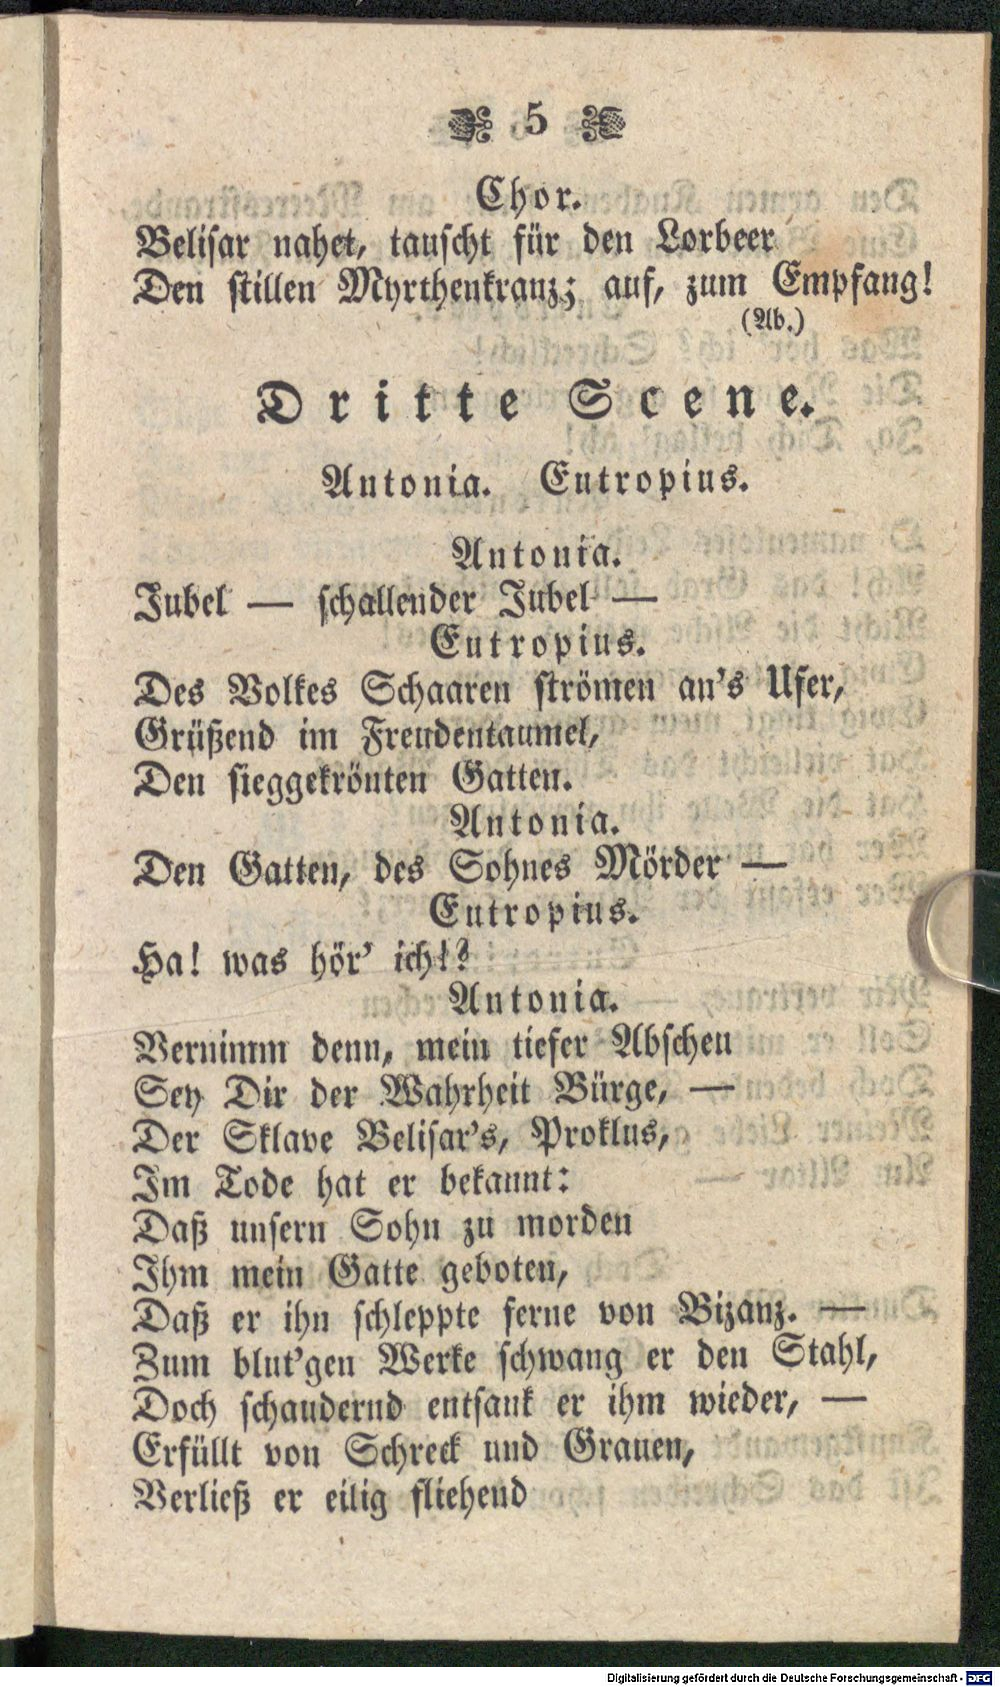 5
Chor.
Belisar nahet, tauscht für den Lorbeer
Den stillen Myrthenkranz; auf, zum Empfang!
(Ab.)
Dritte Scene.
Antonia. Eutropius.
Antonia.
Jubel — schallender Jubel —
Eutropius.
Des Volkes Schaaren strömen an's Ufer,
Grüßend im Freudentaumel,
Den sieggekrönten Gatten.
Antonia.
Den Gatten, des Sohnes Mörder —
Eutropius.
Ha! was hör' ich!?
Antonia.
Vernimm denn, mein tiefer Abscheu
Sey Dir der Wahrheit Bürge, —
Der Sklave Belisar's, Proklus,
Im Tode hat er bekannt:
Daß unsern Sohn zu morden
Ihm mein Gatte geboten,
Daß er ihn schleppte ferne von Bizanz. —
Zum blut'gen Werke schwang er den Stahl,
Doch schaudernd entsank er ihm wieder, —
Erfüllt von Schreck und Grauen,
Verließ er eilig fliehend
Digitalisierung gefördert durch die Deutsche Forschungsgemeinschaft - DFG